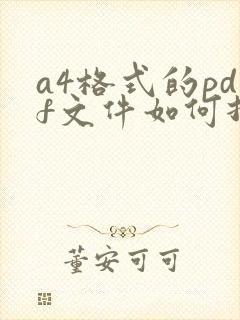 a4格式的pd
f文件如何
董安可可